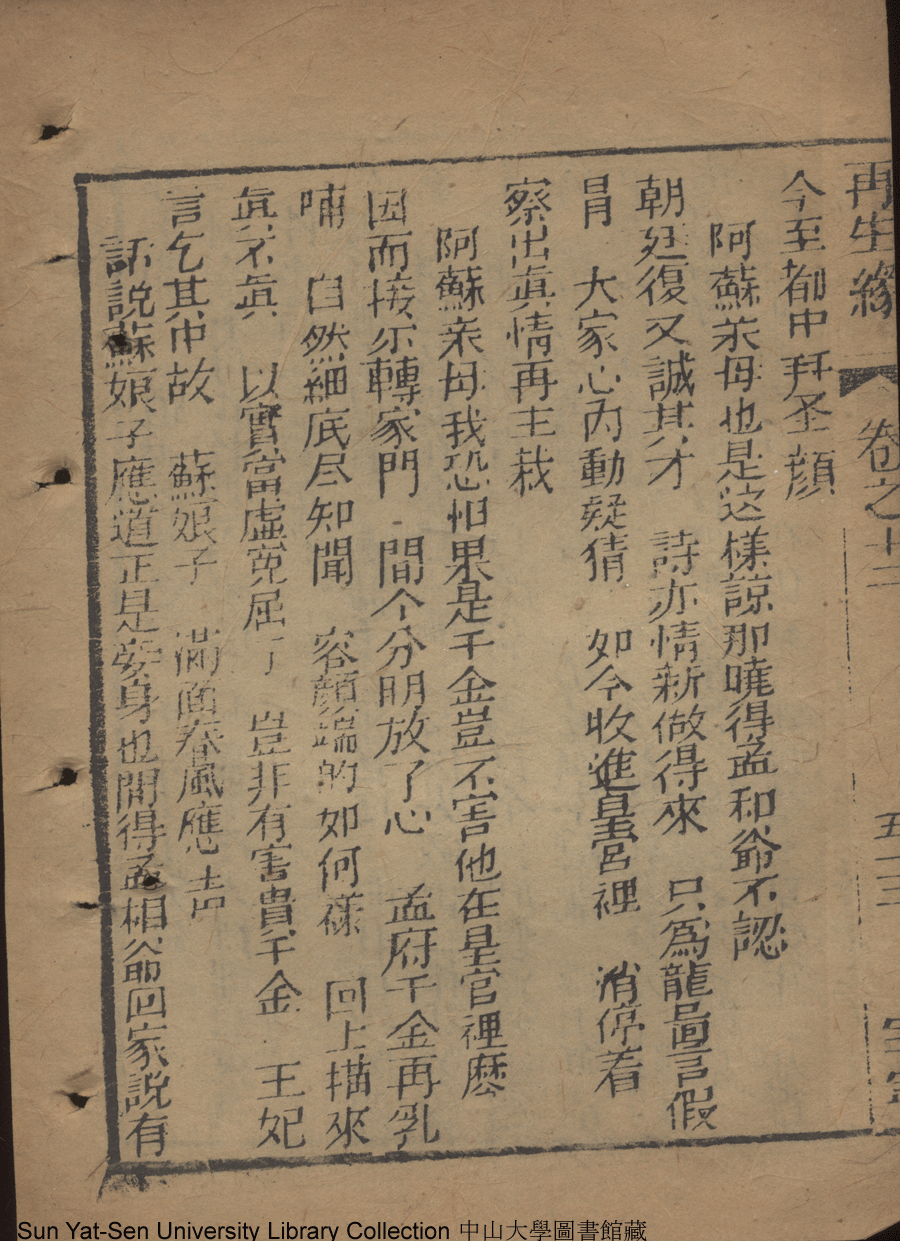 再生緣 卷之十三 五十三
今至都中拜圣顔
阿蘇亲母也是这様諒那曉得孟和爺不認
朝廷復又誠其才 詩亦情新做得來 只爲龍啚言假
冒 大家心內動疑猜 如今收進皇宮裡 消停着
察出眞情再主裁
阿蘇亲母我恐怕果是千金豈不害他在皇宫裡麽
因而接尔轉家門 間个分明放了心 孟府千金再乳
哺 自然細底尽知聞 容顔端的如何樣 回上描來
眞不眞 以實當虛寃屈了 豈非有害貴千金 王妃
言乞其中故 蘇娘子 滿面春風應一声
話說蘇娘子應道正是妾身也聞得孟相爺回家說有
Sun Yat-Sen University Library Collection 中山大學圖書館藏